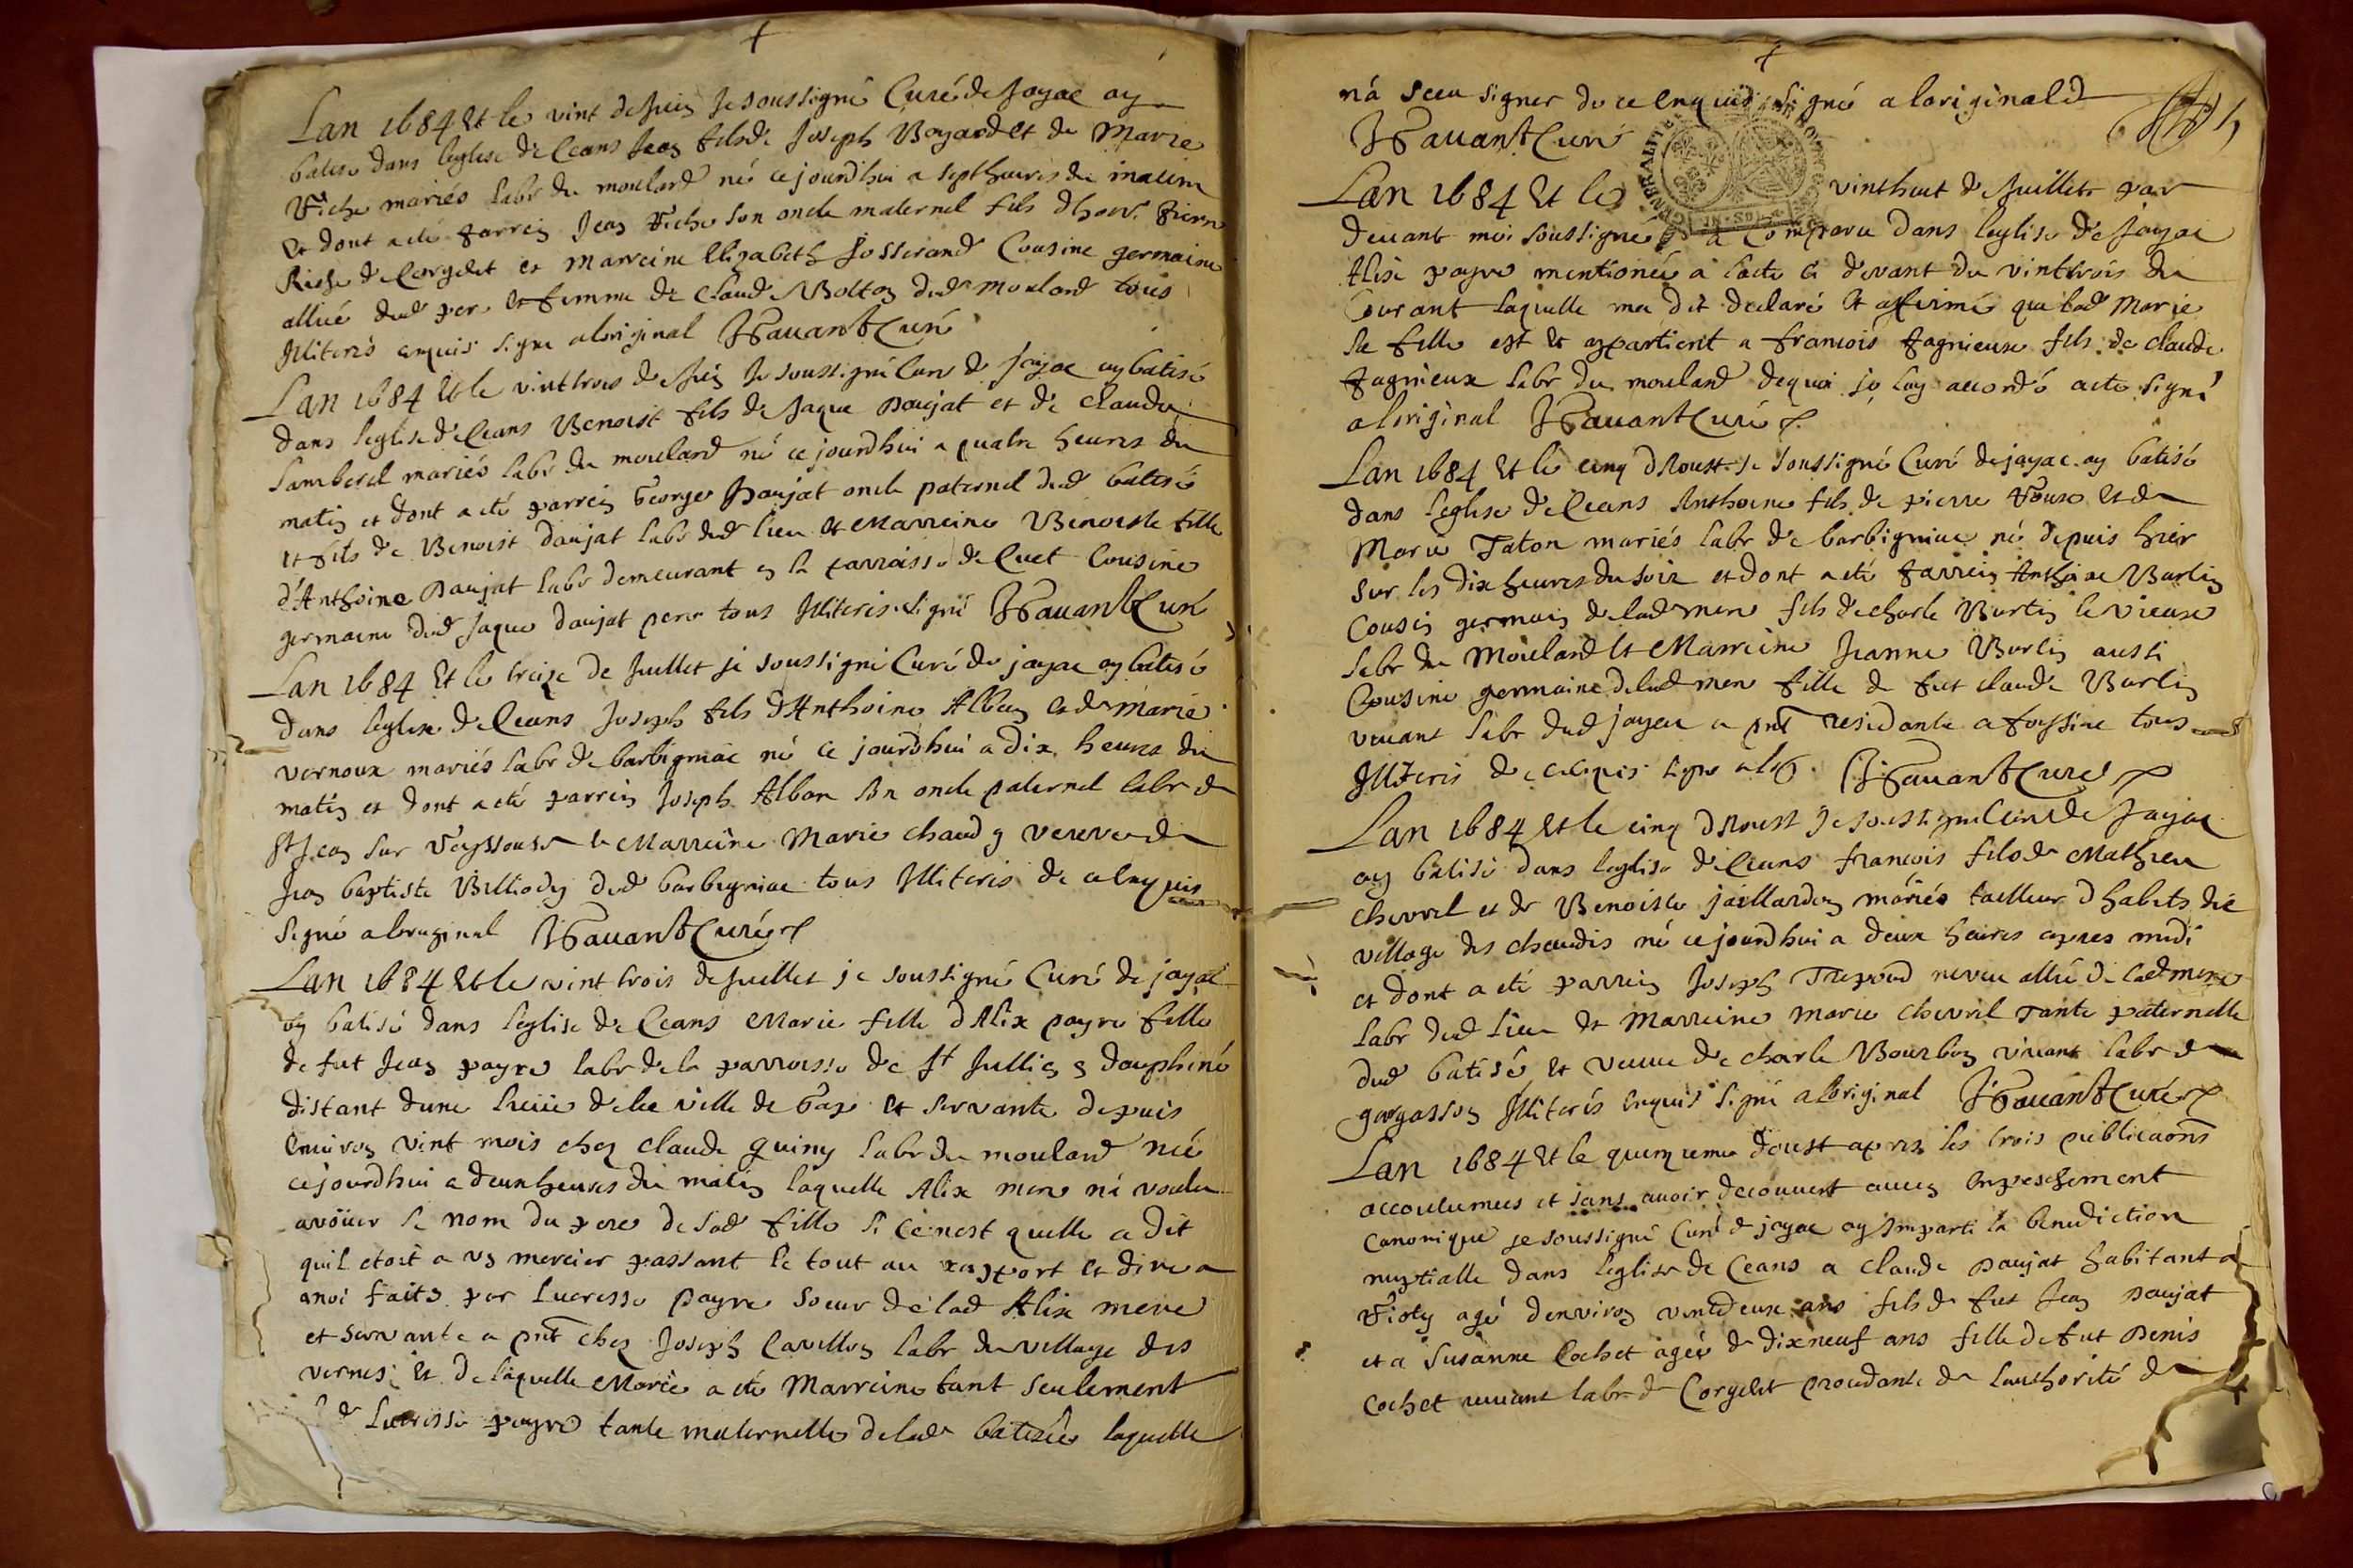 Lan 1684 Et le vint de Juin Je soussigné Curé de Jayac ay
batisé dans leglise de Ceans Jean fils de Joseph Bozard et de Marie
Viche mariés labr du moulard né ce jourdhui a sept heures du matin
Et dont a eté parrein Jean Viche son oncle maternel fils dhon. Pierre
de Corgelet et Marreine Elizabeth Josserand Cousine germaine
allié dud pere et femme de Claude Bolton dud moulard tous
Illiteris enquis signe aloriginal Favant Curé
Lan 1684 Et le vinttrois de Juin Je soussigné Curé de Jayac ay batisé
dans leglise de Ceans Benoist fils de Jaque Daujat et de Claudine
Lamberel mariés labr du moulard né ce jourdhui a quatre heures du
matin et dont a eté parrein George Daujat oncle paternel dud batisé
et fils de Benoist Daujat labr dud lieu et Marreine Benoiste fille
d'Anthoine Daujat labr demeurant en la parroisse de Cuet Cousine
germaine dud Jaque Daujat pere tous Illiteris signé Favant Curé
Lan 1684 Et le treize de Juillet je soussigné Curé de jayac ay batisé
dans leglise de Ceans Joseph fils dAnthoine Alban et de marie
vernoux mariés labr de barbigniac né ce jourdhui a dix heures du
matin et dont a eté parrein Joseph Alban son oncle paternel labr de
St Jean sur Veyssouse et Marreine Marie chaudy veuve de
Jean baptiste Billiody dud barbigniac tous Illiteris de ce enquis
signé aloriginal Favant Curé
Lan 1684 Et le vint trois de Juillet je soussigné Curé de jayac
ay batisé dans leglise de Ceans Marie fille dAlix payre fille
de fut Jean payre labr de la parroisse de St Jullien en dauphiné
distant dune lieue de la ville de Gap et servante depuis
environ vint mois chez claude guiny labr du moulard née
cejourdhui a deux heures du matin laquelle Alix mere na voulu
avoüer le nom du pere de sad fille si ce nest quelle a dit
quil etoit a un mercier passant le tout au rapport et dire a
a moi faits par Lucresse payre soeur de lad Alix mere
et servante a pnt chez Joseph Cavillon labr du village des
vernes Et de laquelle Marie a eté Marreine tant seulement
lad Lucresse payre tante maternelle de lad batisée laquelle
n'a sceu signer de ce enquis signé a loriginal
Favant Curé
Lan 1684 Et le vinthuit de Juillet par
devant moi soussigné a comparu dans leglise de Jayac
Alix payre mentionée a lacte ci devant du vinttrois du
courant laquelle ma dit declaré et affirmé que lad Marie
sa fille est et appartient a francois fagnieux fils de claude
fagnieux labr du moulard dequoi je luy accordé acte signé
a loriginal Favant Curé
Lan 1684 Et le cinq dAoust Je soussigné Curé de jayac ay batisé
dans leglise de Ceans Anthoine fils de pierre et de
Marie Taton mariés labr de barbigniac né depuis hier
sur les dix heures du soir et dont a eté parrein Anthoine Burtin
Cousin germain de lad mere fils de charle Burtin le vieux
labr du Moulard et Marreine Jeanne Burtin aussi
Cousine germaine de lad mere fille de fut claude Burtin
vivant labr dud jayac a pnt residante a foyssiac tous
Illiteris de ce enquis signé Favant Curé
Lan 1684 Et le cinq dAoust Je soussigné Curé de Jayac
ay batisé dans leglise de Ceans francois fils de Mathieu
chevrel et de Benoiste jaillardon mariés tailleur dhabits du
village des chaudis né ce jourdhui a deux heures apres midi
et dont a eté parrein Joseph Trepoud neveu allié de lad mere
labr dud lieu et Marreine marie chevril tante paternelle
dud batisé et veuve de charle Bourbon vivant labr de
gargasson Illiteris enquis signé a loriginal Favant Curé
Lan 1684 Et le quinzieme doust apres les trois publicaons
accoutumees et sans avoir decouvert aucun Enpeschement
canonique je soussigné Curé de jayac ay Imparti la benediction
nuptialle dans leglise de Ceans a claude Daujat habitant a
agé denviron vintdeux ans fils de fut Jean Daujat
et a Susanne Cochet agée de dixneuf ans fille de fut Denis
Cochet vivant labr de Corgelet procedante de lauthorité de